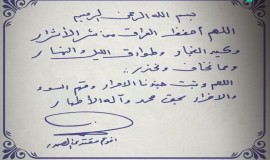 بسم الله الرحمن الرحيم
اللهم أحفظ العراق من شر الأشرار
وكيد الفجار وطوارق الليل والنهار
ومما نخاف ونحذر
اللهم وثبت جيوشنا الأبرار وقهم السوء
والأضرار بحق محمد وآله الأطهار
مقتدى الصدر